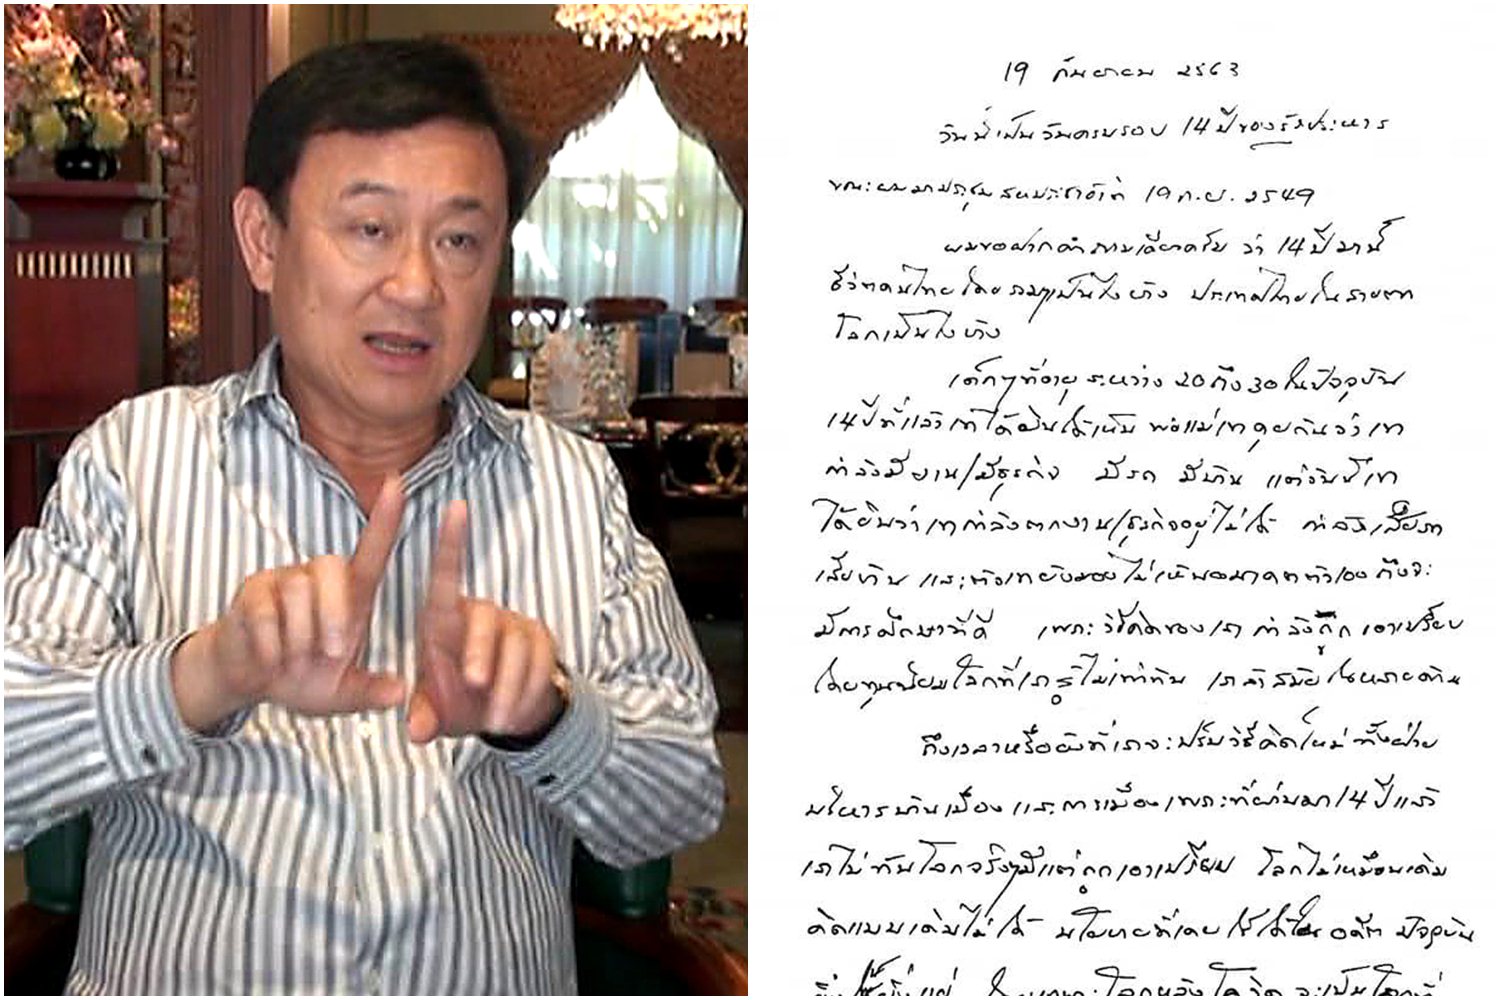 19 กันยายน 2563
วันนี้เป็นวันครบรอบ 14 ปีของรัฐประหาร
ขณะผมมาประชุมสหประชาชาติ 19 ก.ย. 2549
ผมขอฝากคำถามเดียวครับ ว่า 14 ปีมานี้
ชีวิตคนไทยโดยรวมๆเป็นไงบ้าง ประเทศไทยในสายตา
โลกเป็นไงบ้าง
เด็กๆที่อายุระหว่าง 20 ถึง 30 ในปัจจุบัน
14 ปีที่แล้วเขาได้ยินได้เห็น พ่อแม่เขาคุยกันว่าเขา
กำลังมีงาน/มีธุรกิจ มีรถ มีบ้าน แต่วันนี้เขา
ได้ยินว่าเขากำลังตกงาน/ธุรกิจอยู่ไม่ได้ กำลังเสียรถ
เสียบ้าน และตัวเขายังมองไม่เห็นอนาคตตัวเองถึงจะ
มีการศึกษาที่ดี เพราะวิธีคิดของเรากำลังถูกเอาเปรียบ
โดยทุนนิยมโลกที่เรารู้ไม่เท่าทัน เราล้าสมัยในหลายด้าน
ถึงเวลาหรือยังที่เราจะปรับวิธีคิดใหม่ ทั้งฝ่าย
บริหารบ้านเมือง และการเมืองเพราะที่ผ่านมา 14 ปีแล้ว
เราไม่ทันโลกจริงๆมีแต่ถูกเอาเปรียบ โลกไม่เหมือนเดิม
คิดแบบเดิมไม่ได้ นโยบายที่เคยใช้ได้ในอดีต ปัจจุบัน